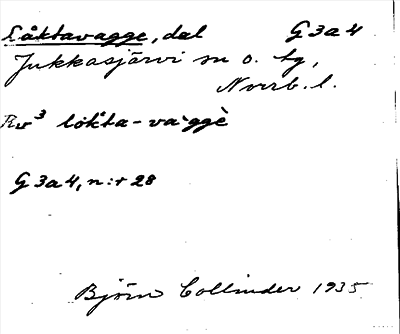 Låktavagge, dal G3a4
Jukkasjärvi sn o. tg,
Norrb. l.
Rv³ lokta-vaggè
G3a4, n:r 28
Björn Collinder 1935